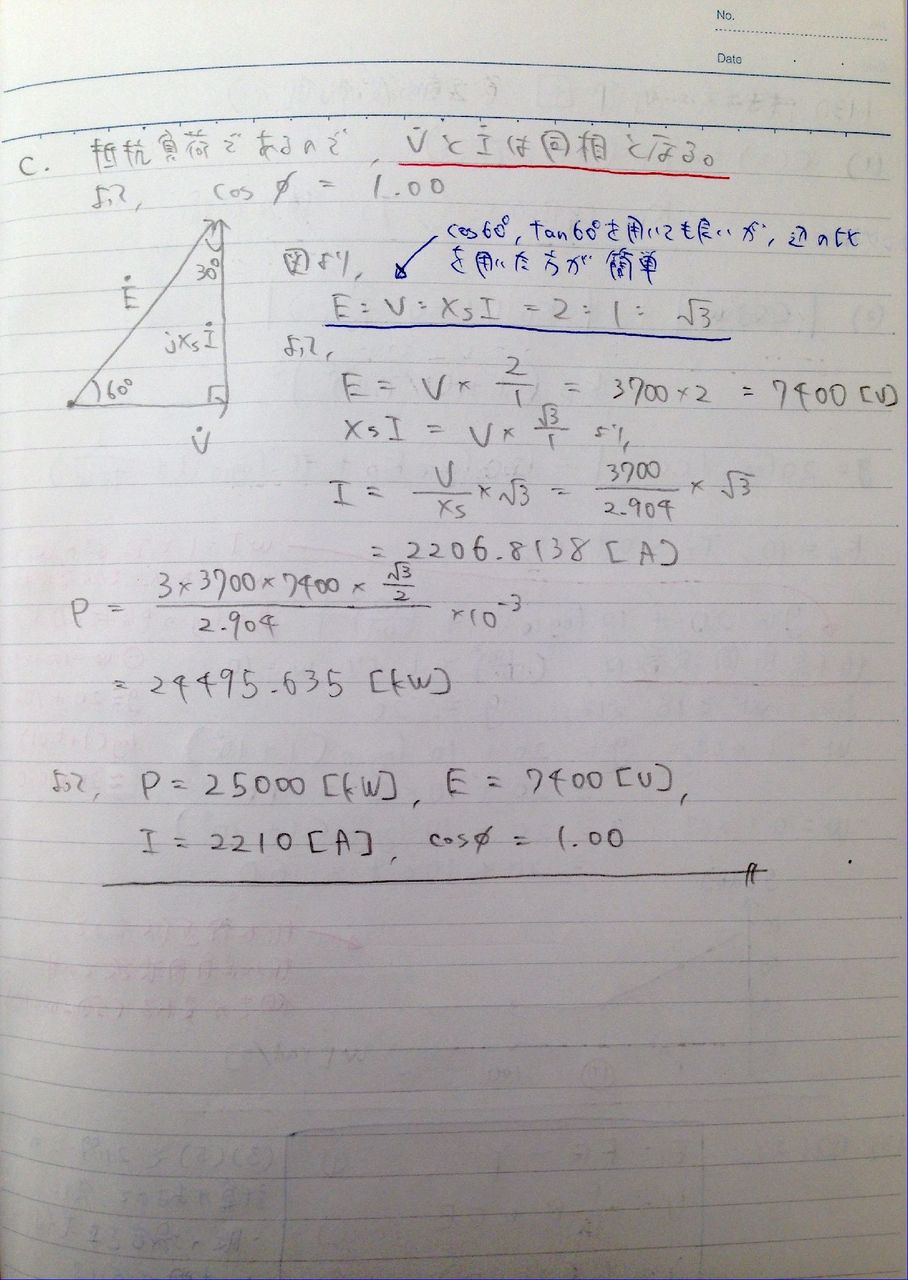 No.
Date
C. 抵抗負荷であるので, V̇とİは同相となる。
よって, cos φ = 1.00
cos60°, tan60°を用いても良いが, 辺の比
を用いた方が簡単
図より,
E : V : XsI = 2 : 1 : √3
Ė
30°
jXsİ
60°
V̇
よって,
E = V × 2/1 = 3700 × 2 = 7400 [V]
XsI = V × √3/1 より,
I = V/Xs × √3 = 3700/2.904 × √3
= 2206.8138 [A]
P = (3 × 3700 × 7400 × √3/2)/2.904 × 10⁻³
= 24495.635 [kW]
よって, P = 25000 [kW], E = 7400 [V],
I = 2210 [A], cosφ = 1.00